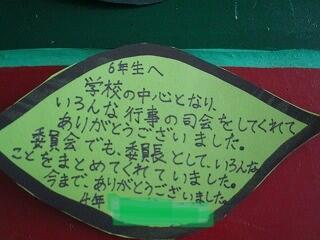 6年生へ
学校の中心となり、
いろんな行事の司会をしてくれて
ありがとうございました。
委員会でも、委員長として、いろんな
ことをまとめてくれていました。
今まで、ありがとうございました。
4年